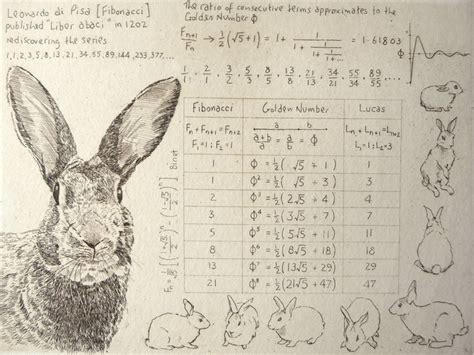 Leonardo di Pisa [Fibonacci]
published "Liber abaci" in 1202
rediscovering the series
1,1,2,3,5,8,13,21,34,55,89,144,233,377,...
The ratio of consecutive terms approximates to the
Golden Number ϕ
Fn+1/Fn → ½(√5+1) = 1+1/(1+1/(1+1/(1+... = 1·61803
ϕ
1/1, 2/1, 3/2, 5/3, 8/5, 13/8, 21/13, 34/21, 55/34, 89/55, ...
Fibonacci Golden Number Lucas
Fn + Fn+1 = Fn+2 a b Ln + Ln+1 = Ln+2
F1=1; F2=1 (a+b)/a = a/b = ϕ L1=1; L2=3
1 ϕ = ½(√5 + 1) 1
1 ϕ² = ½(√5 + 3) 3
2 ϕ³ = ½(2√5 + 4) 4
3 ϕ⁴ = ½(3√5 + 7) 7
5 ϕ⁵ = ½(5√5 + 11) 11
8 ϕ⁶ = ½(8√5 + 18) 18
13 ϕ⁷ = ½(13√5 + 29) 29
21 ϕ⁸ = ½(21√5 + 47) 47
Fn = 1/√5 [((1+√5)/2)ⁿ - ((1-√5)/2)ⁿ] Binet